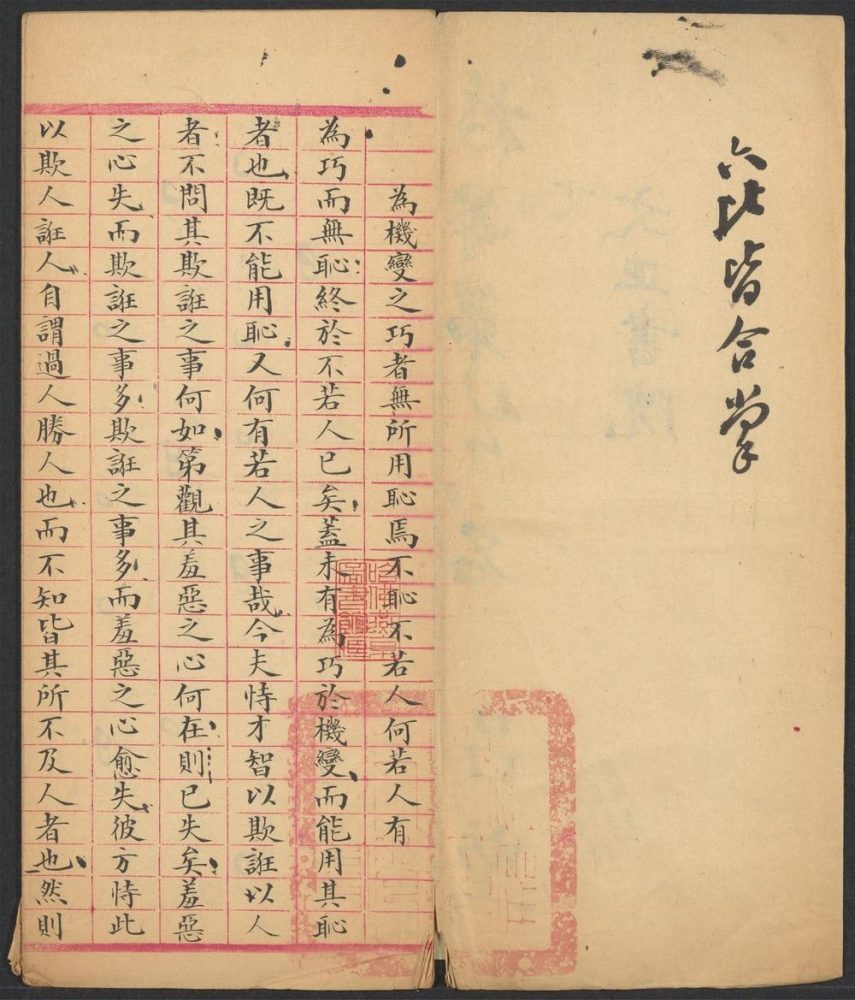 六比皆合掌
為機變之巧者無所用恥焉不恥不若人何若人有
為巧而無恥終於不若人已矣蓋未有為巧於機變而能用其恥
者也既不能用恥又何有若人之事哉今夫恃才智以欺誑以人
者不問其欺誑之事何如第觀其羞惡之心何在則已失矣羞惡
之心失而欺誑之事多欺誑之事多而羞惡之心愈失彼方恃此
以欺人誑人自謂過人勝人也而不知皆其所不及人者也然則
哈佛燕京
圖書館